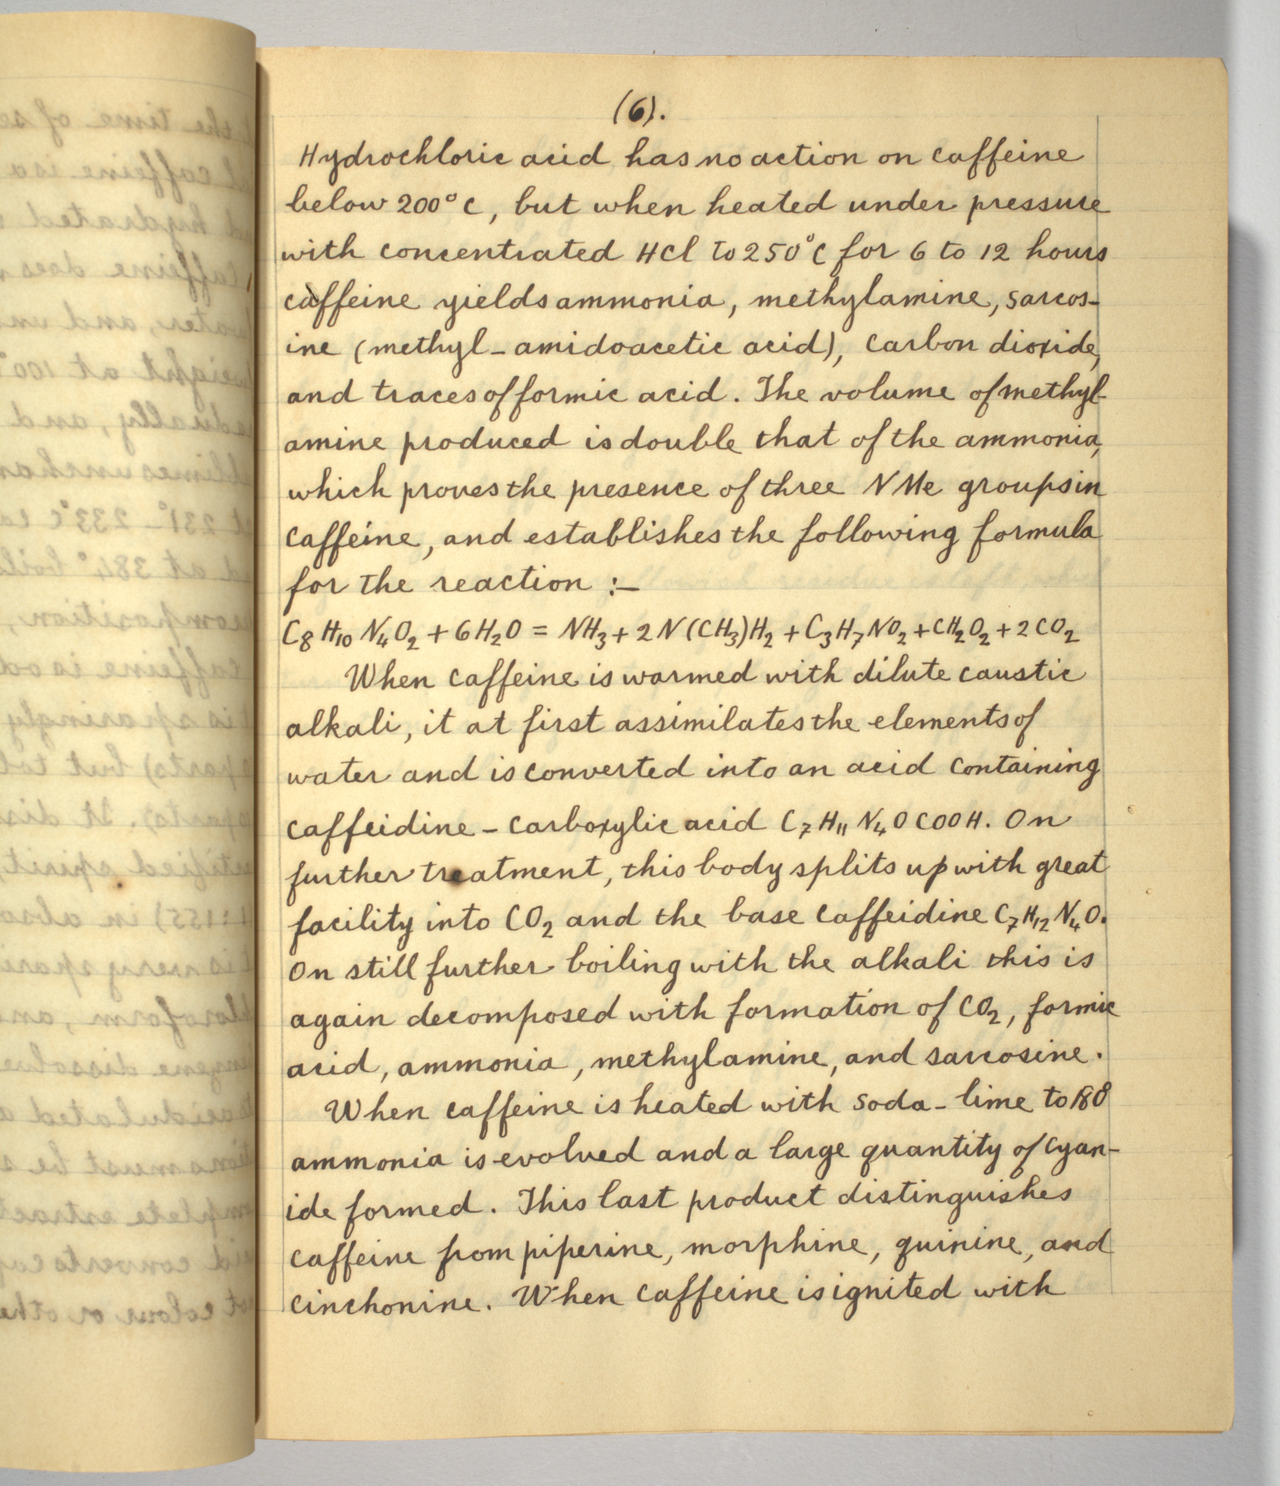 (6).
Hydrochloric acid has no action on caffeine
below 200°C, but when heated under pressure
with concentrated HCl to 250°C for 6 to 12 hours
caffeine yields ammonia, methylamine, sarcos-
ine (methyl-amidoacetic acid), carbon dioxide,
and traces of formic acid. The volume of methyl-
amine produced is double that of the ammonia,
which proves the presence of three NMe groups in
caffeine, and establishes the following formula
for the reaction :—
C₈H₁₀N₄O₂ + 6H₂O = NH₃ + 2N(CH₃)H₂ + C₃H₇NO₂ + CH₂O₂ + 2CO₂
When caffeine is warmed with dilute caustic
alkali, it at first assimilates the elements of
water and is converted into an acid containing
caffeidine-carboxylic acid C₇H₁₁N₄OCOOH. On
further treatment, this body splits up with great
facility into CO₂ and the base caffeidine C₇H₁₂N₄O.
On still further boiling with the alkali this is
again decomposed with formation of CO₂, formic
acid, ammonia, methylamine, and sarcosine.
When caffeine is heated with soda-lime to 180°
ammonia is evolved and a large quantity of cyan-
ide formed. This last product distinguishes
caffeine from piperine, morphine, quinine, and
cinchonine. When caffeine is ignited with